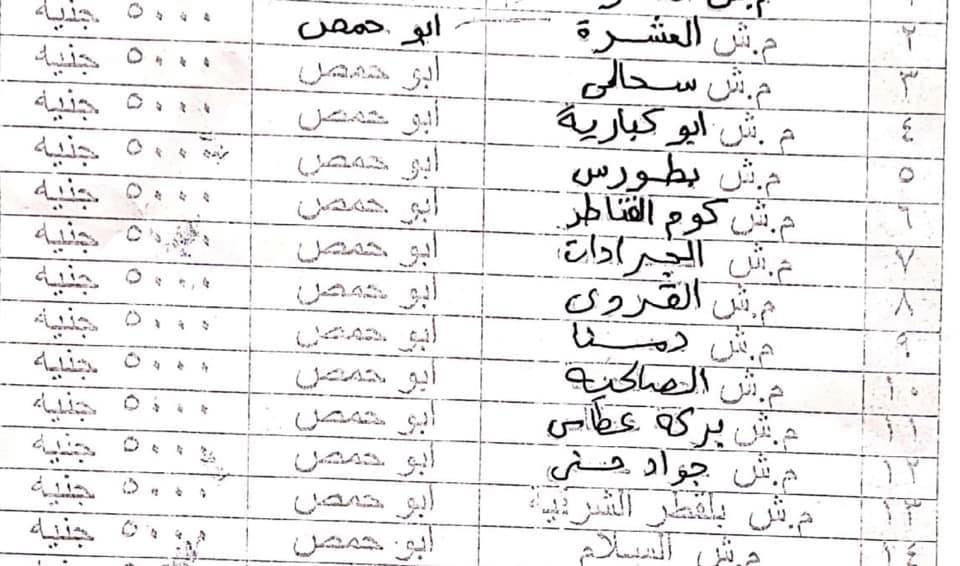 م.ش ٥٠٠٠ جنيه
٢ م.ش العشرة ابو حمص ٥٠٠٠ جنيه
٣ م.ش سحالى أبو حمص ٥٠٠٠ جنيه
٤ م.ش ابو كبارية أبو حمص ٥٠٠٠ جنيه
٥ م.ش بطورس أبو حمص ٥٠٠٠ جنيه
٦ م.ش كوم القناطر أبو حمص ٥٠٠٠ جنيه
٧ م.ش الجرادات أبو حمص ٥٠٠٠ جنيه
٨ م.ش القروى أبو حمص ٥٠٠٠ جنيه
٩ م.ش دمسنا أبو حمص ٥٠٠٠ جنيه
١٠ م.ش الصالحية أبو حمص ٥٠٠٠ جنيه
١١ م.ش بركة عطاس أبو حمص ٥٠٠٠ جنيه
١٢ م.ش جواد حسنى أبو حمص ٥٠٠٠ جنيه
١٣ م.ش بلقطر الشرقية أبو حمص ٥٠٠٠ جنيه
١٤ م.ش السلام أبو حمص ٥٠٠٠ جنيه